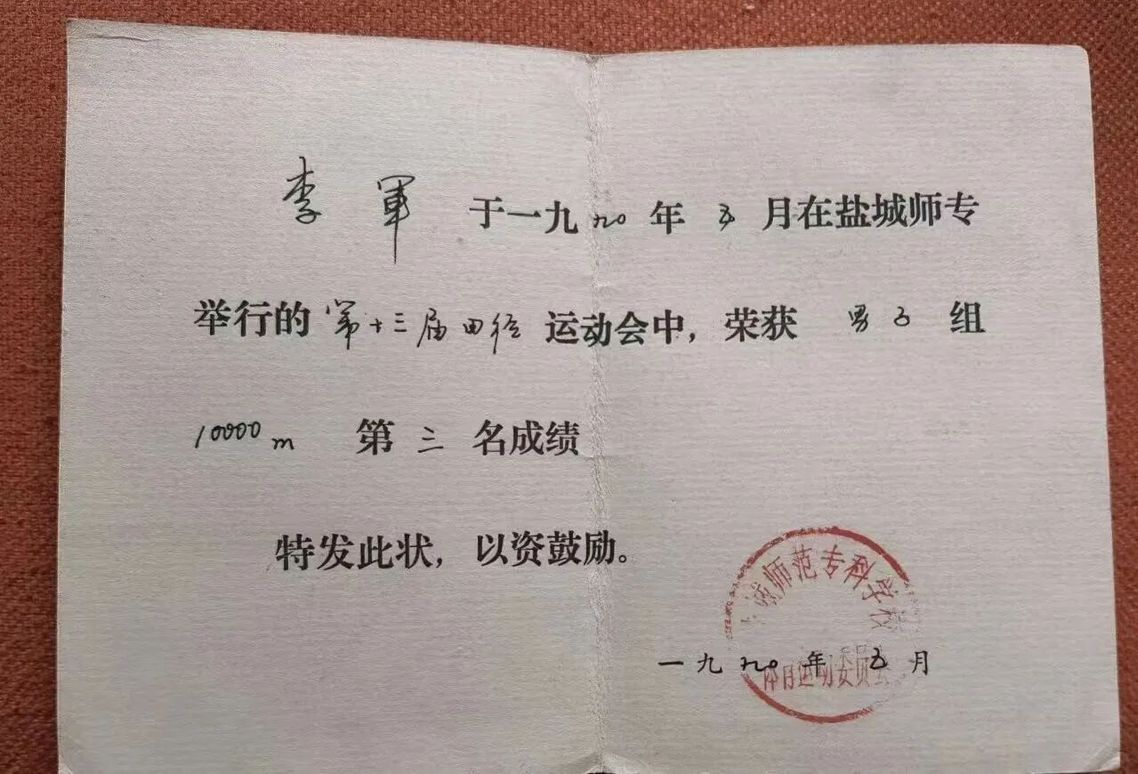 李軍 于一九九〇年五月在盐城师专
举行的第十三届田径运动会中，荣获男子组
10000m 第三名成绩
特发此状，以资鼓励。
城师范专科学校
体育运动委员会
一九九〇年五月